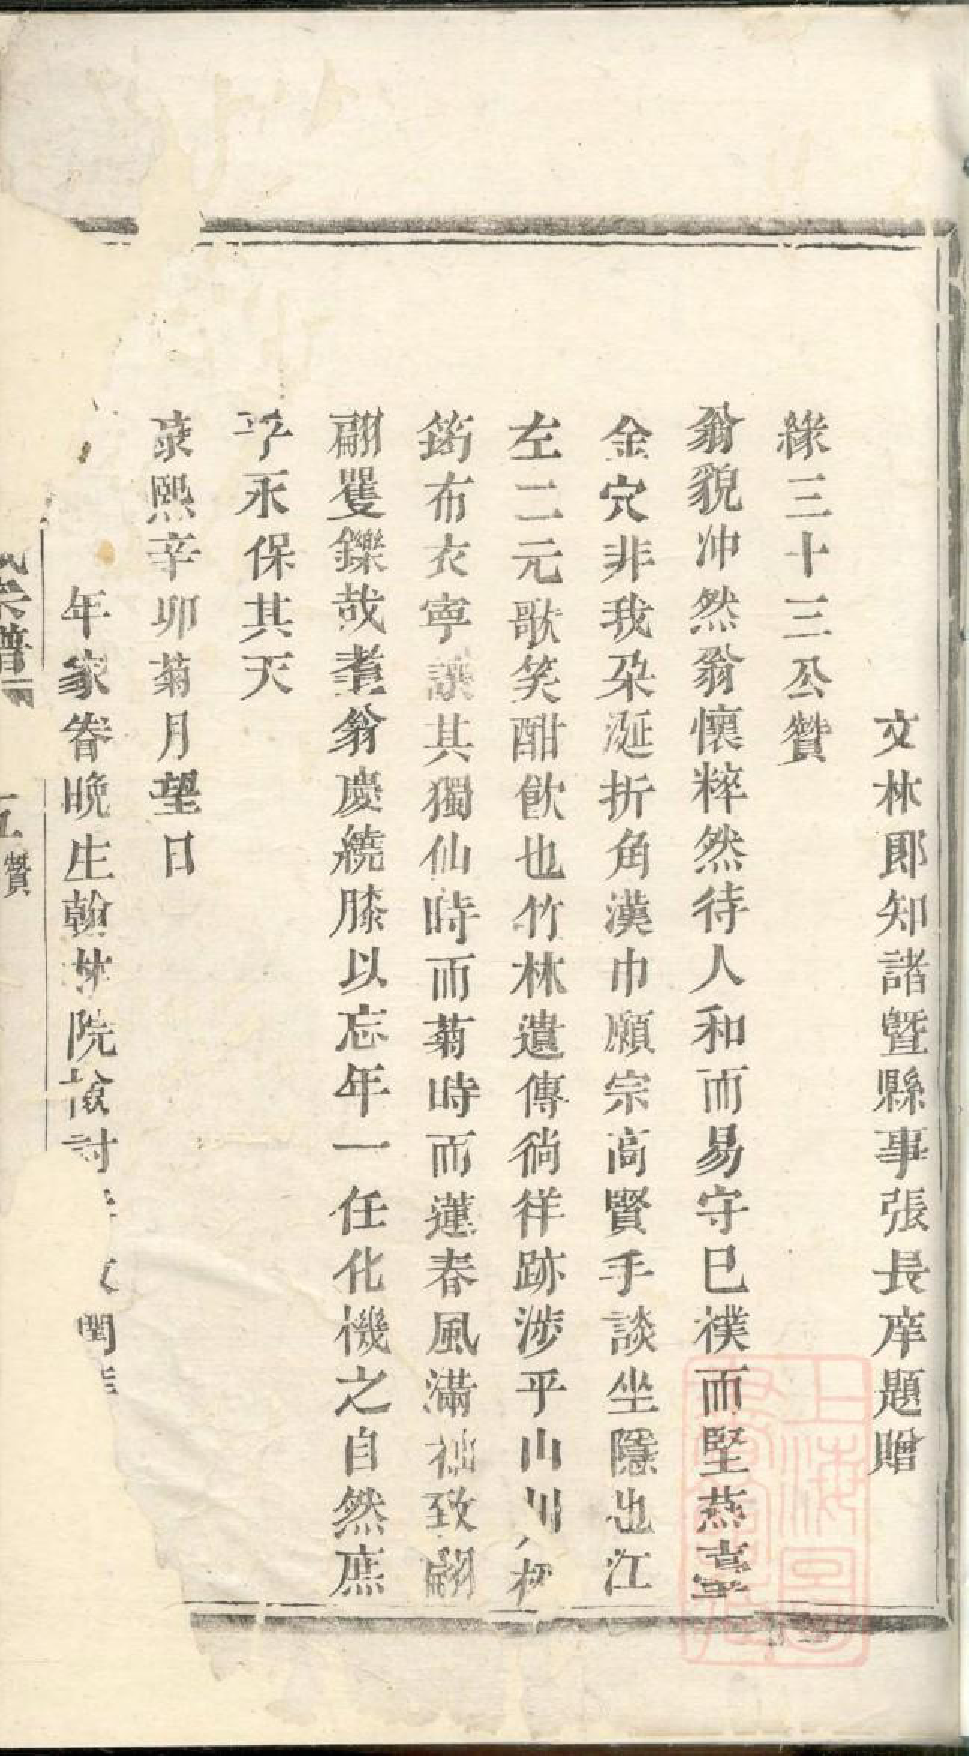 文林郎知諸暨縣事張長庠題贈
綠三十三公贊
翁貌冲然翁懷粹然待人和而易守巳樸而堅燕臺
金穴非我朶涎折角漢巾願宗高賢手談坐隱也江
左二元歌笑酣飮也竹林遺傳徜徉跡涉乎山川
筇布衣寧讓其獨仙時而菊時而蓮春風滿袖致翩
翩矍鑠哉耋翁慶繞膝以忘年一任化機之自然庶
乎永保其天
康熙辛卯菊月望日
年家眷晚生翰林院檢討
氏宗譜
贊
上海圖書館藏